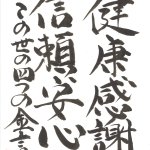 健康感謝
信頼安心
この世の四つの金言